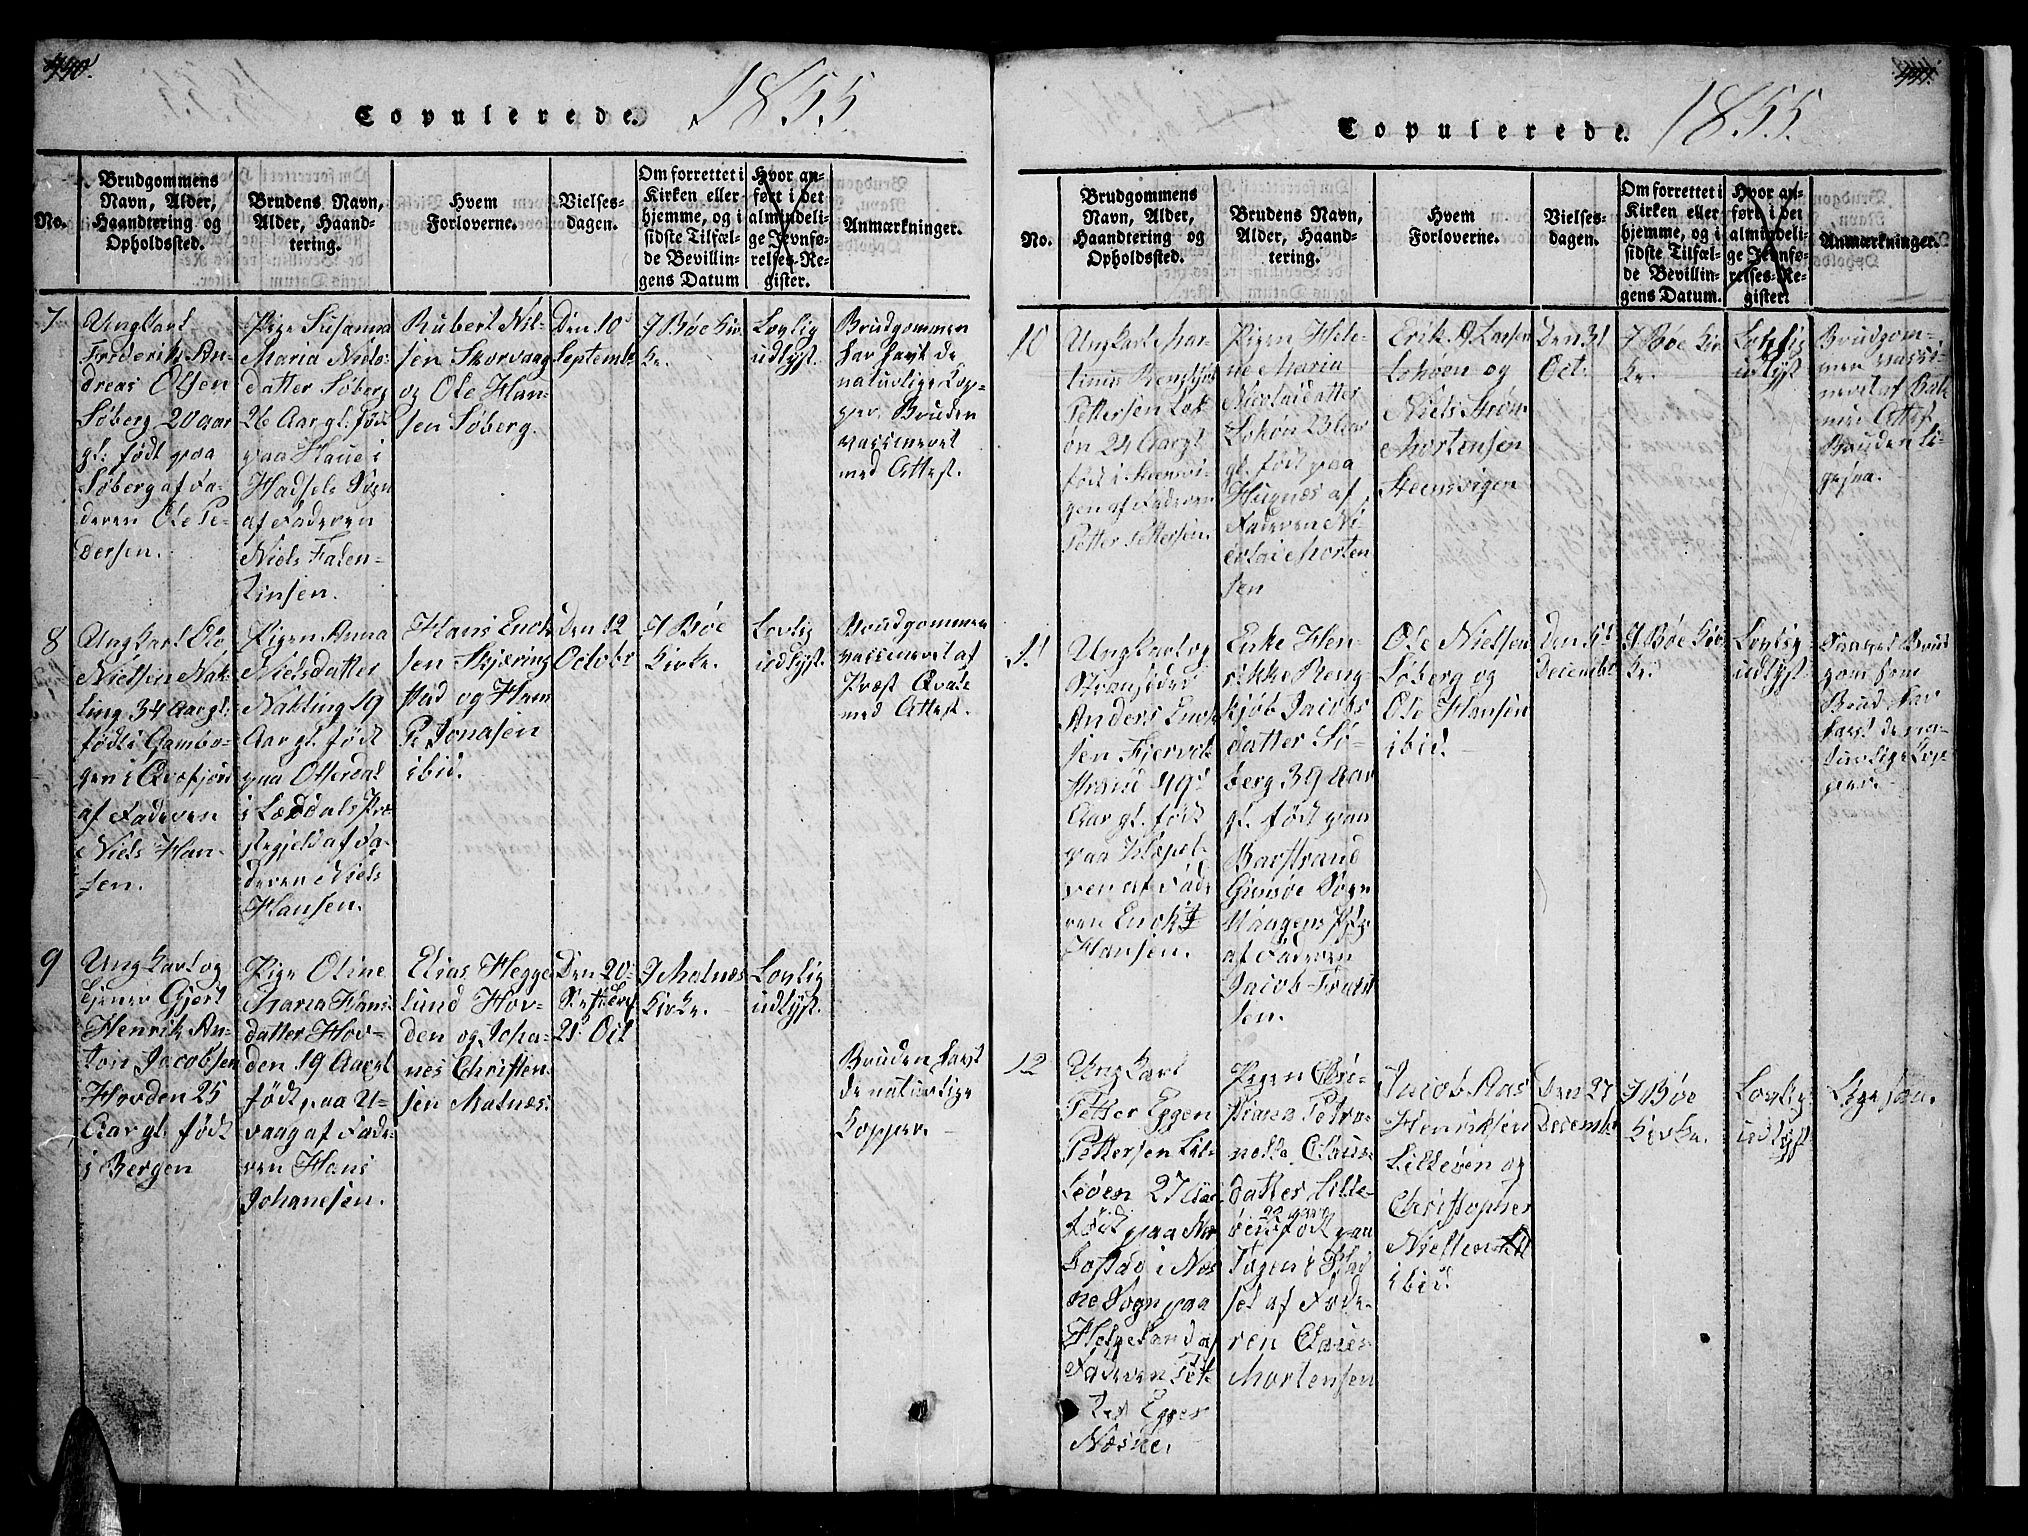 Copulerede. 1855
No.
Brudgommens
Navn, Alder,
Haandtering og
Opholdssted.
Brudens Navn,
Alder, Haand-
tering.
Hvem
Forloverne.
Vielses-
dagen.
Om forrettet i
Kirken eller
hjemme, og i
sidste Tilfæl-
de Bevillin-
gens Datum
Hvor an-
ført i det
almindeli-
ge Jevnfø-
relses-Re-
gister.
Anmærkninger.
7
Ungkarl
Frederik An-
dreas Olsen
Søberg 20 aar
gl. født paa
Søberg af Fa-
deren Ole Pe-
dersen.
Pige Susanna
Maria Niels-
datter Søberg
26 Aar gl. født
paa
Hadsels Sogn
af Faderen
Niels Falen-
tinsen.
Rubert Niel-
sen Skorvaag
og Ole Han-
sen Søberg.
Den 10
Septemb
I Bøe Kir-
ke.
Lovlig
udlyst.
Brudgommen
har havt de
naturlige Kop-
per. Bruden
vassineret
med Attest.
8
Ungkarl Ole
Nielsen Nak-
ling 34 Aar gl.
født i Gambo-
gen i Qvæfjord
af Faderen
Niels Han-
sen.
Pigen Anna
Nielsdatter
Nakling 19
Aar gl. født
paa Otterdal
i Læddals Præ-
stegjeld af Fa-
deren Niels
Hansen.
Hans Enok-
sen Skjæring-
stad og Hans
P. Jonasen
ibid.
Den 12
October
I Bøe
Kirke.
Lovlig
udlyst.
Brudgommen
vassineret af
Præst Qvale
med Attest.
9
Ungkarl og
tjener Gjert
Henrik An-
ton Jacobsen
Hovden 25
Aar gl. født
i Bergen
Pige Oline
Maria Hans-
datter Hov-
den 19 Aar gl.
født paa U-
vaag af Fade-
ren Hans
Johanesen.
Elias Hegge-
lund Hov-
den og Joha-
nes Christen-
sen Malnæs.
Den 20
21 Oct
I Malnæs
Kirke.
Lovlig
udlyst.
Bruden havt
de naturlige
Kopper.
Copulerede. 1855.
No.
Brudgommens
Navn, Alder,
Haandtering og
Opholdssted.
Brudens Navn,
Alder, Haand-
tering.
Hvem
Forloverne.
Vielses-
dagen.
Om forrettet i
Kirken eller
hjemme, og i
sidste Tilfæl-
de Bevillin-
gens Datum.
Hvor an-
ført i det
almindeli-
ge Jevnfø-
relses-Re-
gister.
Anmærkninger.
10
Ungkarl Mar-
tinus
Pettersen
24 Aar gl.
født i
gen af Faderen
Petter Pettersen.
Pigen Hele-
ne Maria
Nicolaidatter
23 Aar
gl. født paa
Hugnæs af
Faderen Ni-
colai Morten-
sen
Erik A Larsen
og
Niels Strøm
Mortensen
Steensvigen
Den 31
Oct.
I Bøe Kir-
ke.
Lovlig
udlyst
Brudgom-
men vassi-
neret af
Attest
Bruden li-
gesaa.
11
Ungkarl og
Strandsidder
Anders Enok-
sen Fjærvol-
strand 49
Aar gl. født
paa
ven af Fade-
ren Enok
Hansen.
Enke Hen-
rikke Reng-
kjøb Jacobs-
datter Sø-
berg 39 Aar
gl. født paa
Barstrand
Gimsøe Sogn
Vaagens
af Faderen
Jacob
sen.
Ole Nielsen
Søberg og
Ole Hansen
ibid
Den
December
I Bøe Kir-
ke.
Lovlig
udlyst.
Saavel Brud-
gom som
Brud har
havt de na-
turlige Kop-
per.
12
Ungkarl
Petter Eggen
Pettersen Lil-
leøen 27 Aar
født paa
i Næs-
ne Sogn paa
Helgeland af
Faderen Pet-
ter Eggen
Næsne.
Pigen
Petro-
nelle Claus-
datter Lille-
øen 22 aar født paa
i
set af Fade-
ren Claus
Mortensen
Jacob Aas
Henriksen
Lilleøen og
Christopher
Nielsen
ibid.
Den 27
Decemb
I Bøe
Kirke.
Lovlig
udlyst
Ligesaa.